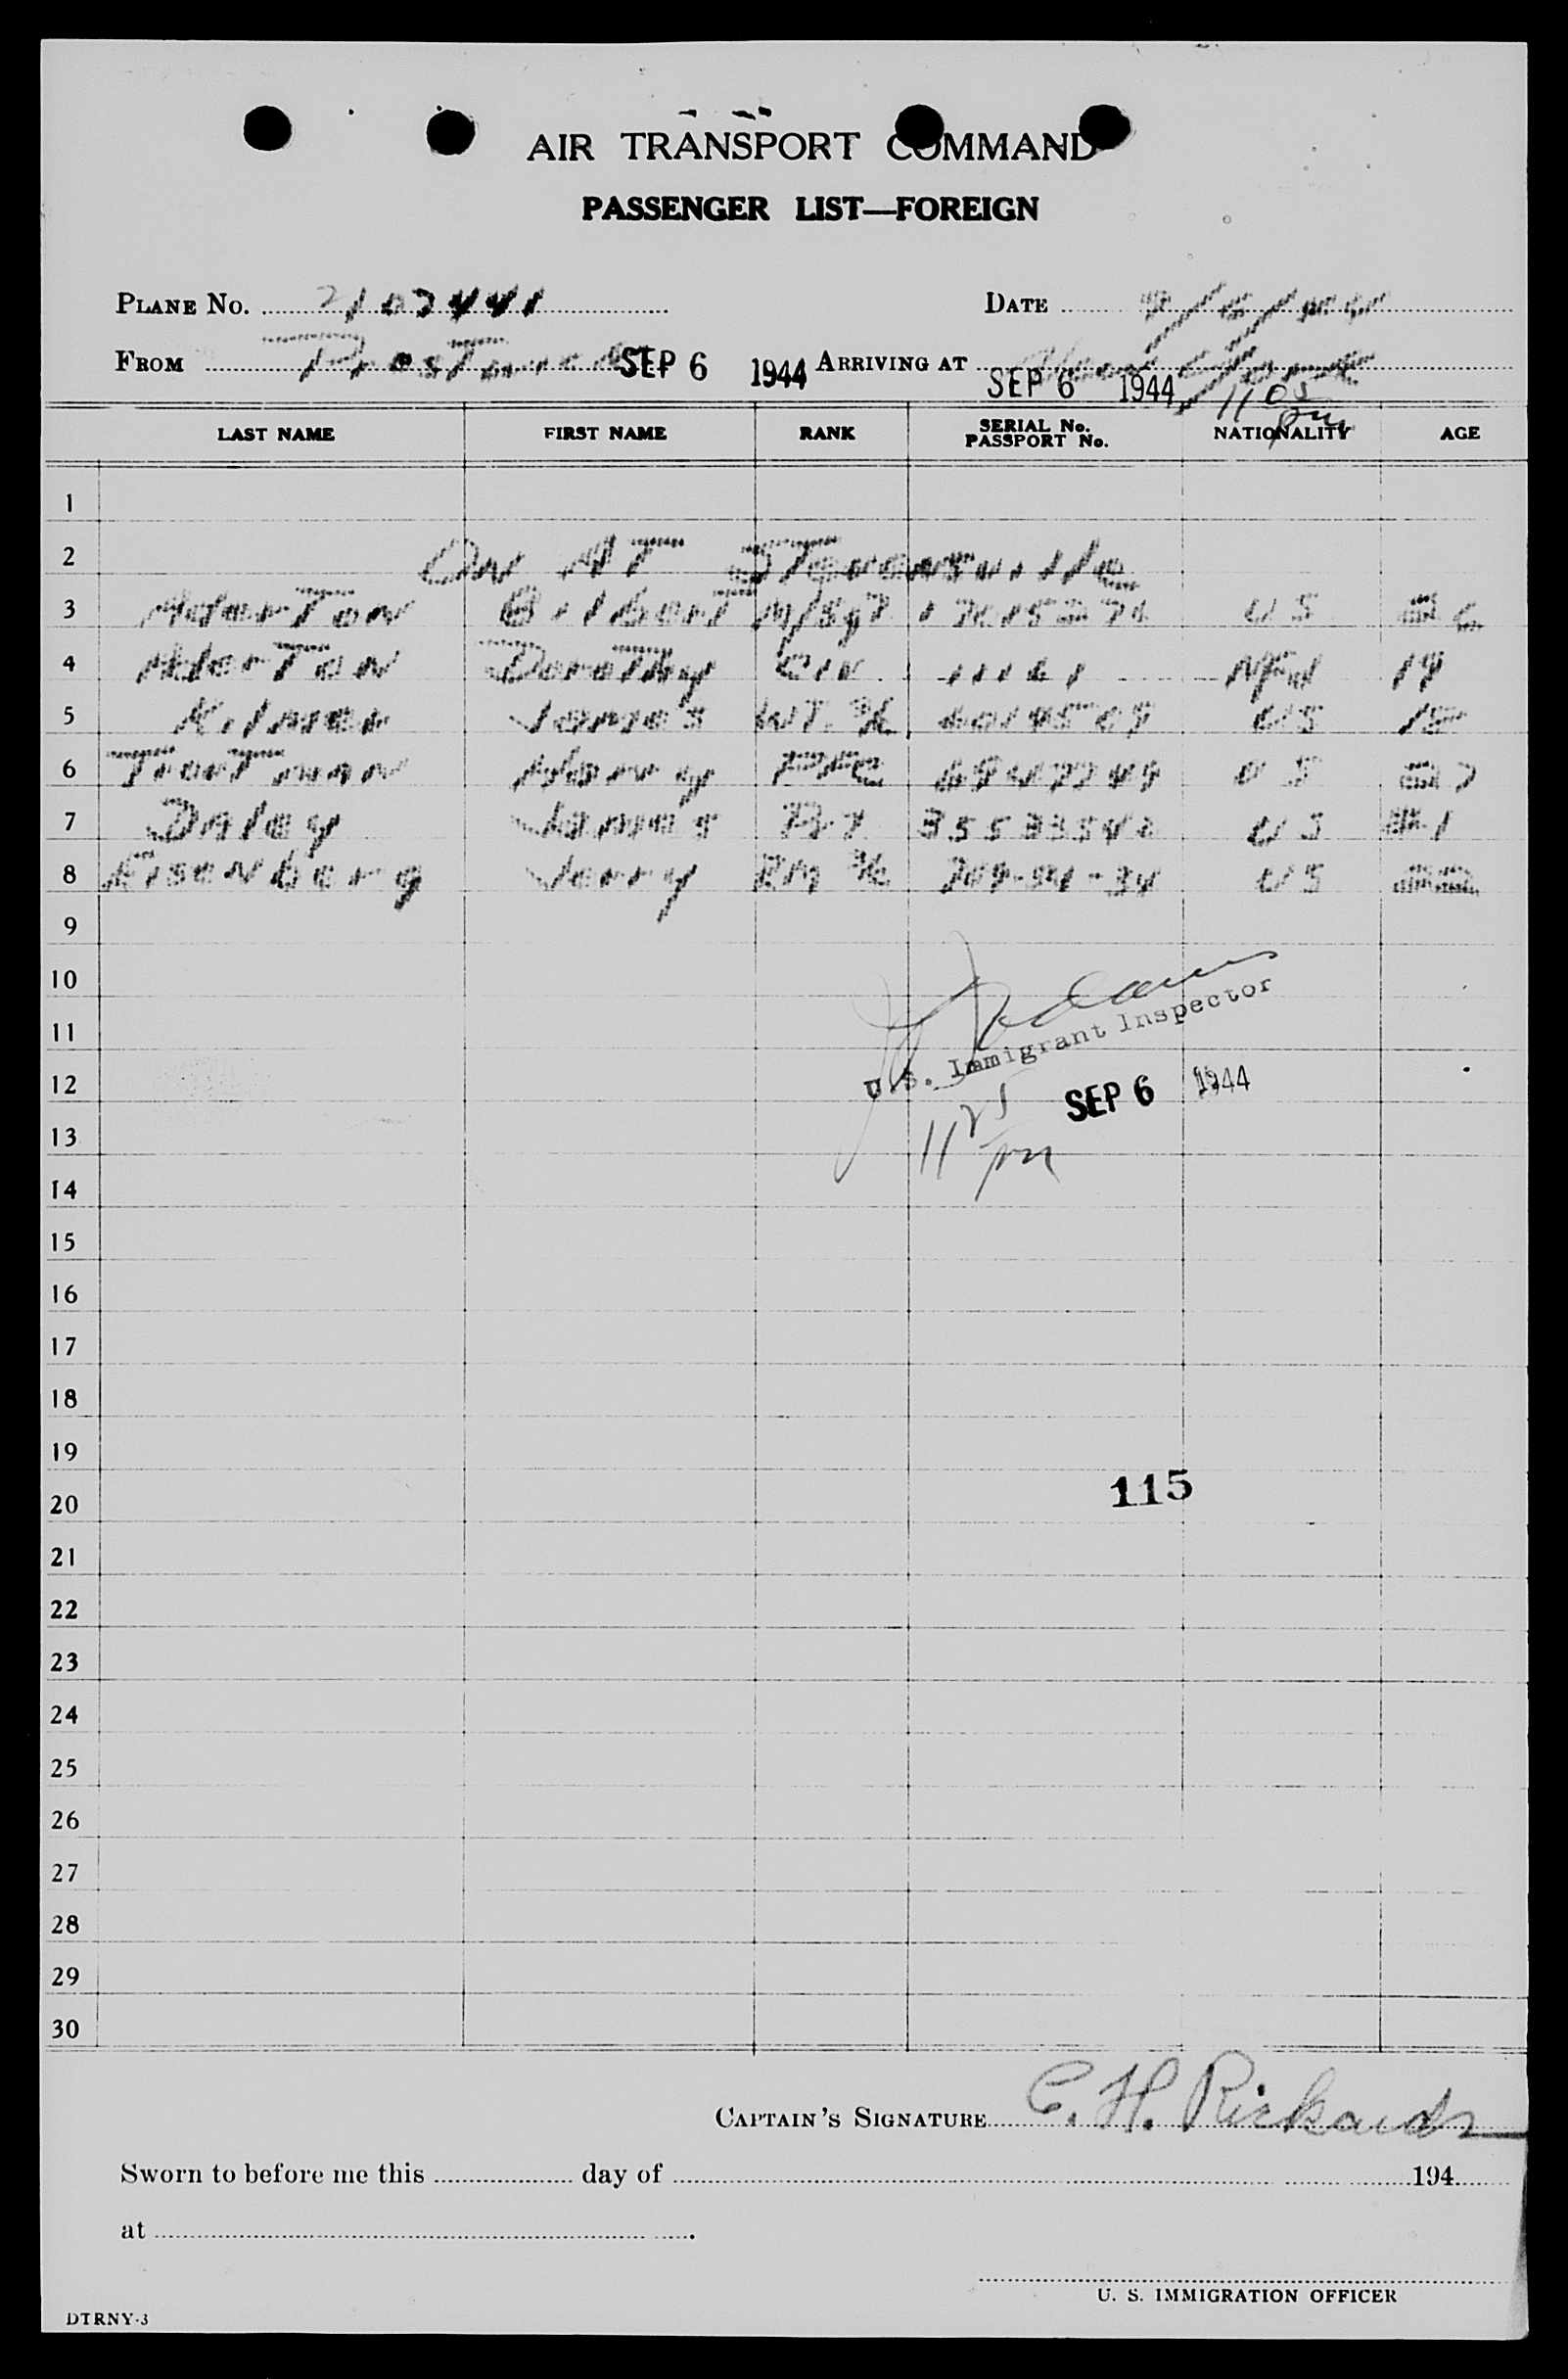 AIR TRANSPORT COMMAND
PASSENGER LIST—FOREIGN
PLANE No. 2107441 DATE
FROM SEP 6 1944 ARRIVING AT SEP 6 1944 11 05 pm
LAST NAME FIRST NAME RANK SERIAL No. PASSPORT No. NATIONALITY AGE
1
2 ON AT Stevensville
3 AderTon GilberT M/Sgt US
4 AderTon DoroThy Civ 11161 Nfd 19
5 Kilmer James US
6 TrouTman Harry PFC US 27
7 Daley James 35533542 US
8 EisenberG Jerry RM 709-94-34 US 22
9
10
11
U.S. Immigrant Inspector
12 SEP 6 1944
13 11 25 pm
14
15
16
17
18
19
20 115
21
22
23
24
25
26
27
28
29
30
CAPTAIN'S SIGNATURE C. H. Rickards
Sworn to before me this day of 194
at .
U. S. IMMIGRATION OFFICER
DTRNY-3